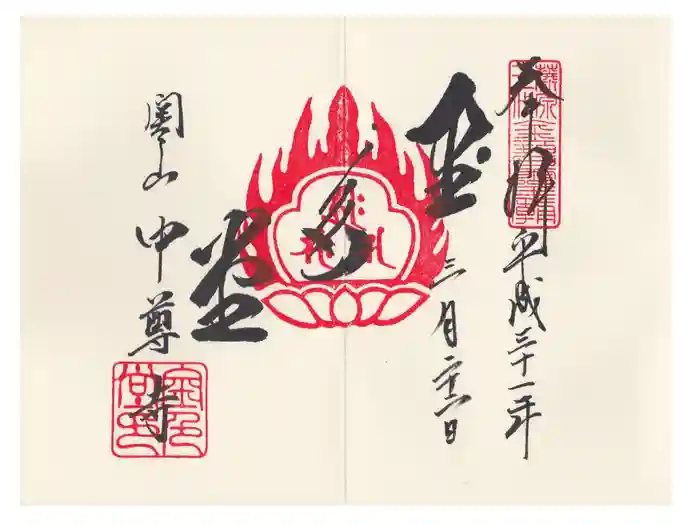 奉拝 平成三十一年
三月二十二日
金色堂
関山 中尊寺